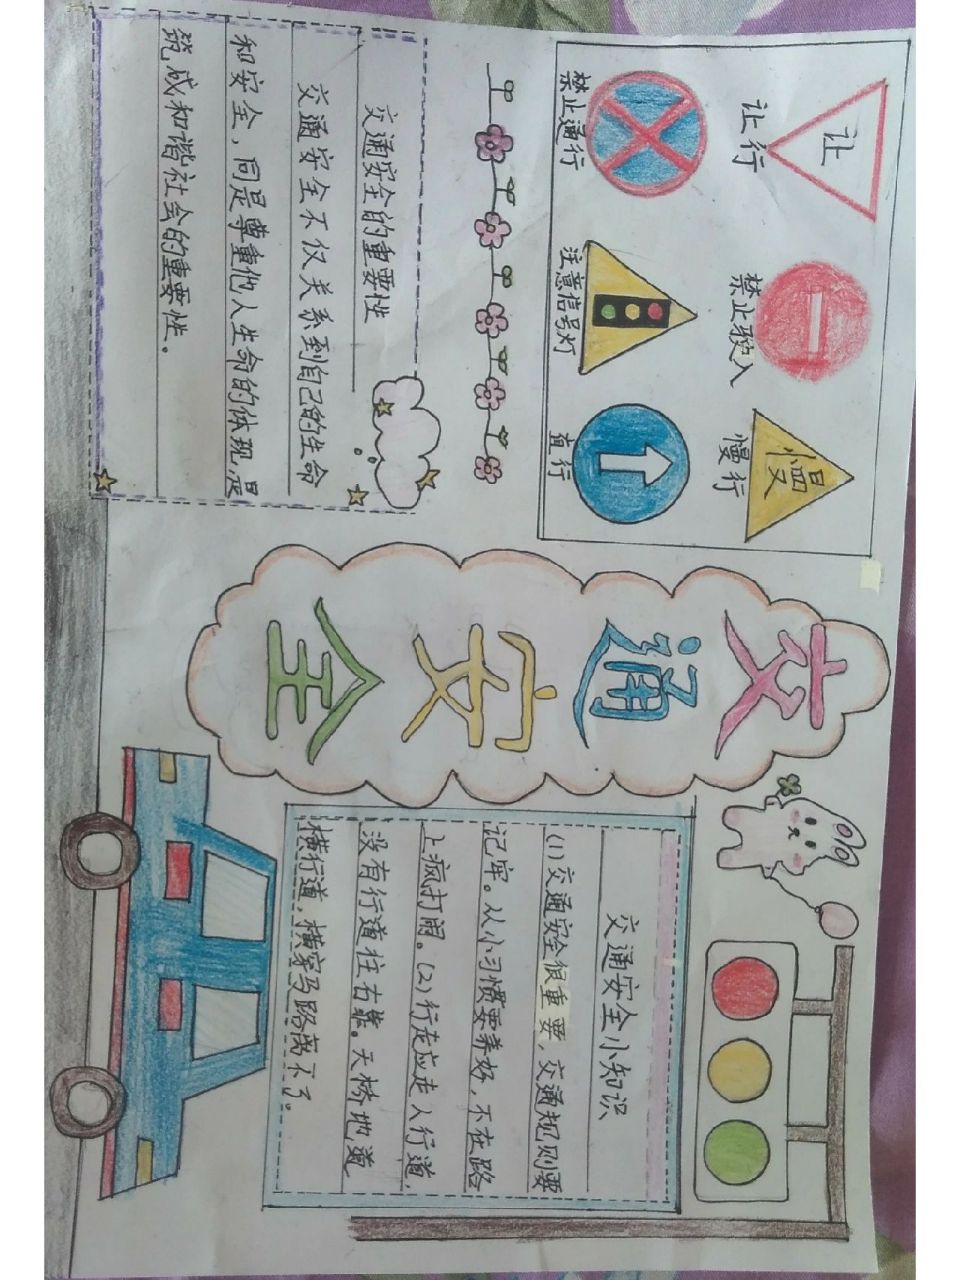 交通安全
让
让行
禁止驶入
慢
慢行
禁止通行
注意信号灯
直行
交通安全的重要性
交通安全不仅关系到自己的生命
和安全，同是尊重他人生命的体现，是
筑成和谐社会的重要性。
交通安全小知识
(1)交通安全很重要，交通规则要
记牢。从小习惯要养好，不在路
上疯打闹。(2)行走应走人行道，
没有行道往右靠。天桥地道
横行道，横穿马路离不了。